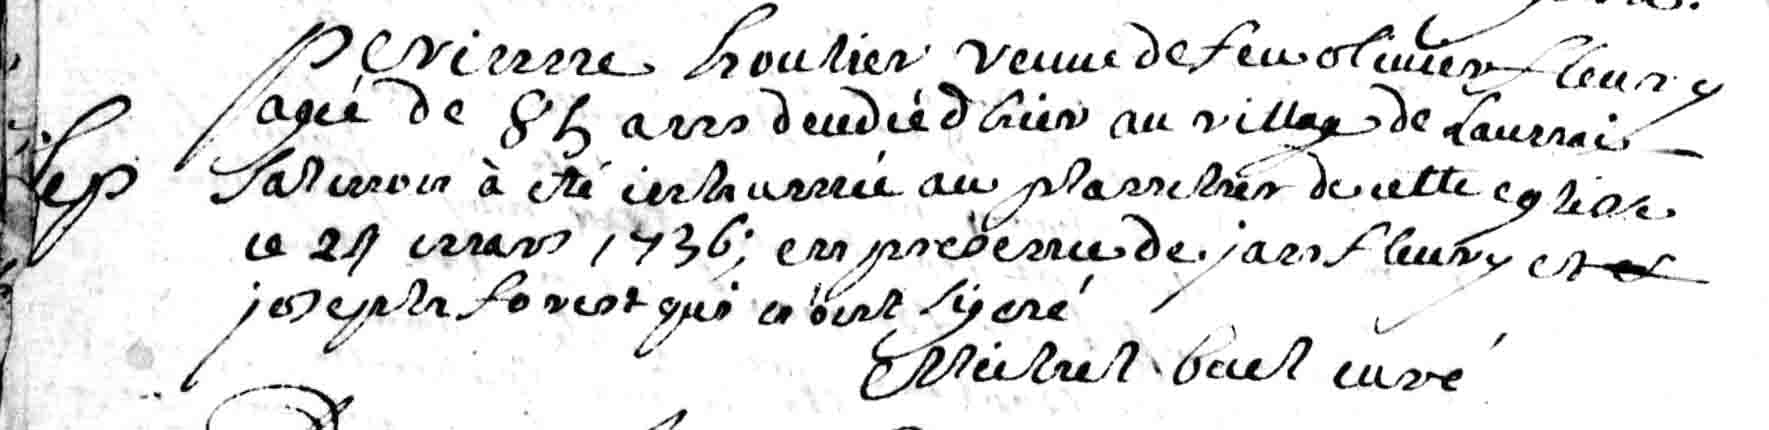 perinne houlier veuue de feu oliuier fleury
agée de 85 ans decedée d hier au village de Launai
Salmon à été inhumée au placitre de cette eglise
Sep
ce 24 mars 1736; en presence de jan fleury et
joseph forest qui n'ont signé
Michel buel curé